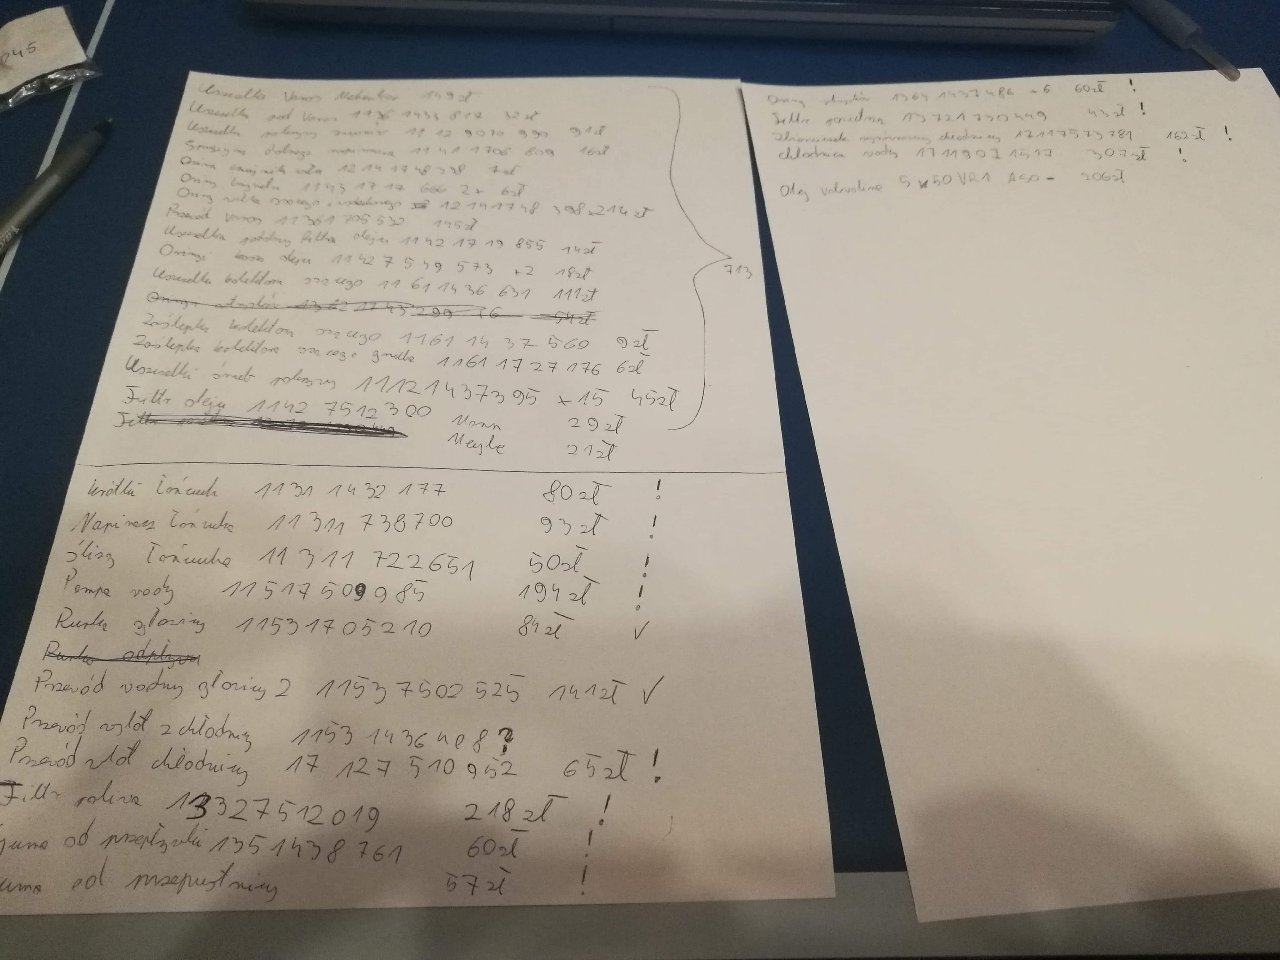 Uszczelka Vanos 149zł
Uszczelka pod Vanos 1136 1433 817 32zł
Uszczelka pokrywy zaworów 11 12 9070 990 91zł
11 41 1706 809 16zł
Oring 12 14 1748 398 7zł
Oring bagnetu 1143 1717 666 2x 6zł
Oring 12141748 398x2 14zł
Przewód Vanos 11361705532 145zł
Uszczelka podstawy filtra oleju 1142 1719 855 14zł
Oringi oleju 1142 7549 573 x2 18zł
Uszczelka kolektora ssącego 1161 1436 631 111zł
Zaślepka kolektora ssącego 1161 14 37 560 9zł
Zaślepka kolektora ssącego gruba 1161 17 27 176 6zł
Uszczelki śrub pokrywy 11121437395 x15 45zł
Filtr oleju 1142 7512300 Mann 29zł
Meyle 21zł
713
krótki łańcuch 1131 1432 177 80zł !
Napinacz łańcucha 11311 738700 93zł !
ślizg łańcucha 11311 722651 50zł !
Pompa wody 11517509985 194zł !
Rurka głowicy 11531705210 84zł ✓
Rurka odpływu
Przewód wodny głowicy 2 1153 7502 525 141zł ✓
Przewód wylot z chłodnicy 1153 1436 408 ?
Przewód wlot chłodnicy 17 127 510 952 65zł !
Filtr paliwa 13327512019 218zł !
guma od przepływki 1351438761 60zł !
guma od przepustnicy 57zł !
0245
Oringi 1364 1437486 x6 60zł !
Filtr powietrza 13721730449 43zł !
Zbiorniczek wyrównawczy chłodnicy 17117573781 162zł !
chłodnica wody 17119071517 307zł !
Olej valvoline 5x50 VR1 206zł